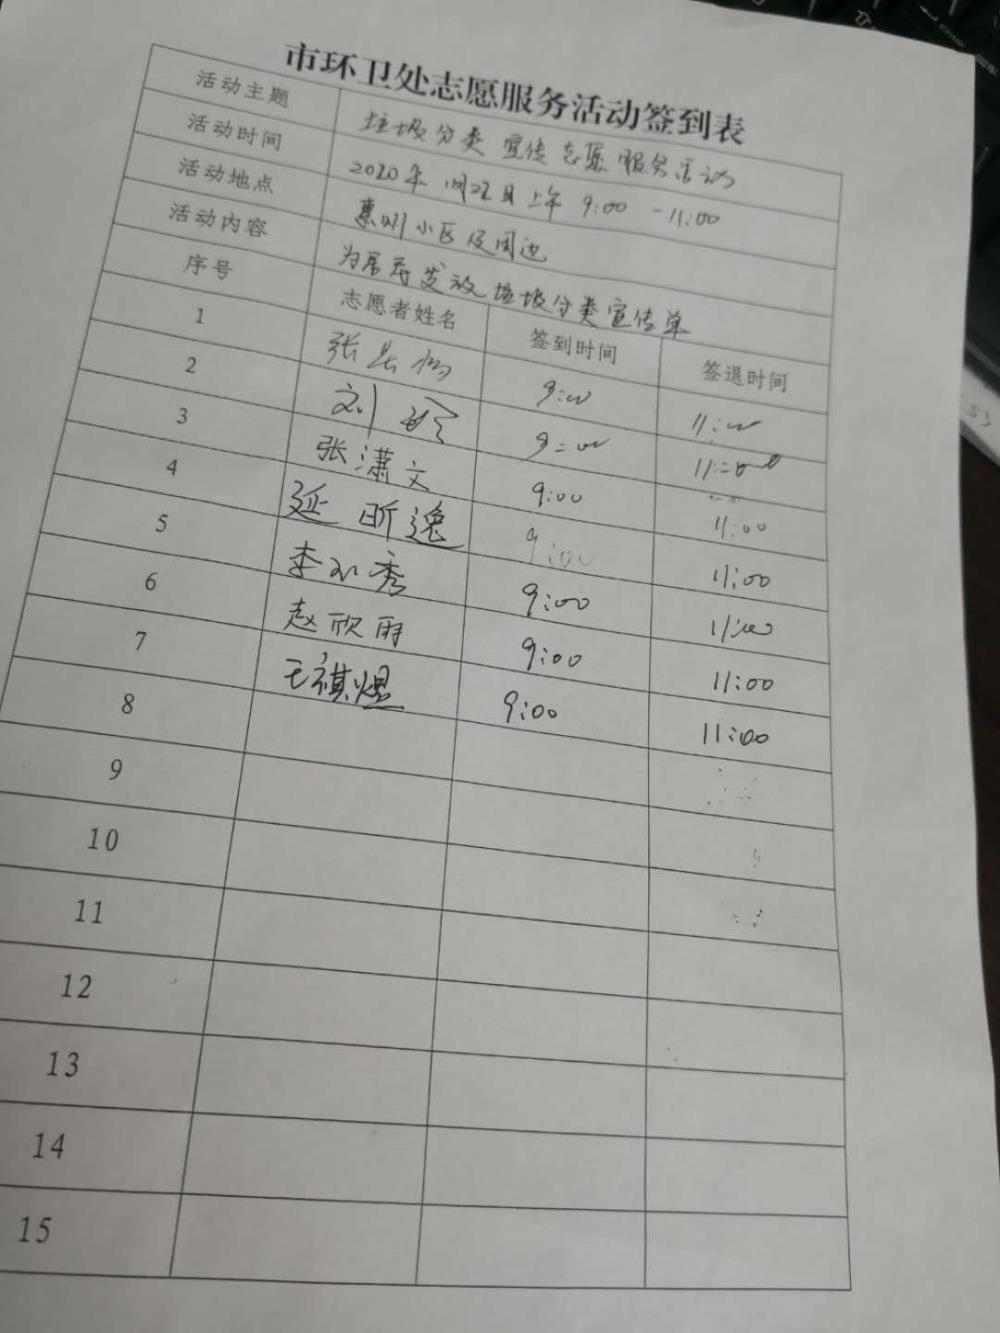 市环卫处志愿服务活动签到表
活动主题 垃圾分类宣传志愿服务活动
活动时间 2020年 月22日上午 9:00-11:00
活动地点 惠州小区及周边
活动内容 为居民发放垃圾分类宣传单
序号 志愿者姓名 签到时间 签退时间
1 张 杨 9:00 11:00
2 刘 9:00 11:00
3 张潇文 9:00 11:00
4 延昕逸 9:00 11:00
5 李 秀 9:00 11:00
6 赵欣雨 9:00 11:00
7 王祺煜 9:00 11:00
8
9
10
11
12
13
14
15